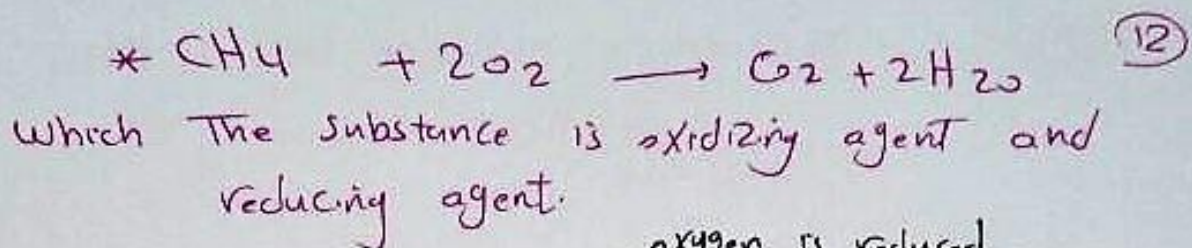 * CH4 + 2O2 → CO2 + 2H2O
12
Which The substance is oxidizing agent and
reducing agent.
oxygen is reduced